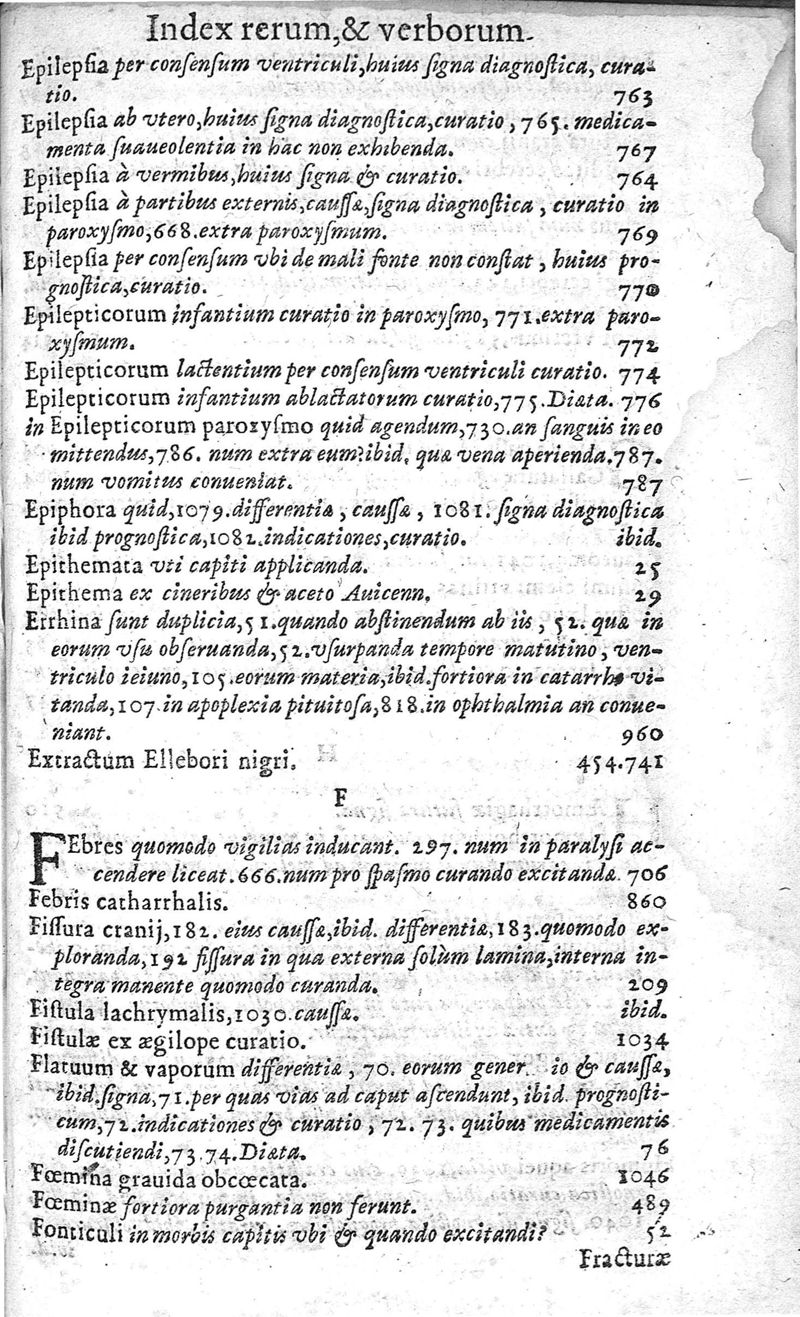 Index rerum, & verborum.
Epilepsia per consensum ventriculi, huius signa diagnostica, cura-
tio. 763
Epilepsia ab vtero, huius signa diagnostica, curatio, 765. medica-
menta suaueolentia in hac non exhibenda. 767
Epilepsia à vermibus, huius signa & curatio. 764
Epilepsia à partibus externis, caussæ, signa diagnostica, curatio in
paroxysmo, 668. extra paroxysmum. 769
Epilepsia per consensum vbi de mali fonte non constat, huius pro-
gnostica, curatio. 770
Epilepticorum infantium curatio in paroxysmo, 771. extra paro-
xysmum. 772
Epilepticorum lactentium per consensum ventriculi curatio. 774
Epilepticorum infantium ablactatorum curatio, 775. Diæta. 776
in Epilepticorum paroxysmo quid agendum, 730. an sanguis in eo
mittendus, 786. num extra eum? ibid. quæ vena aperienda. 787.
num vomitus conueniat. 787
Epiphora quid, 1079. differentiæ, caussæ, 1081. signa diagnostica
ibid prognostica, 1082. indicationes, curatio. ibid.
Epithemata vti capiti applicanda. 25
Epithema ex cineribus & aceto Auicenn. 29
Errhina sunt duplicia, 51. quando abstinendum ab iis, 52. quæ in
eorum vsu obseruanda, 52. vsurpanda tempore matutino, ven-
triculo ieiuno, 105. eorum materia, ibid. fortiora in catarrho vi-
tanda, 107. in apoplexia pituitosa, 818. in ophthalmia an conue-
niant. 960
Extractum Ellebori nigri. 454.741
F
FEbres quomodo vigilias inducant. 297. num in paralysi ac-
cendere liceat. 666. num pro spasmo curando excitandæ. 706
Febris catharrhalis. 860
Fissura cranij, 182. eius caussæ, ibid. differentiæ, 183. quomodo ex-
ploranda, 192 fissura in qua externa solùm lamina, interna in-
tegra manente quomodo curanda. 209
Fistula lachrymalis, 1030. caussæ. ibid.
Fistulæ ex ægilope curatio. 1034
Flatuum & vaporum differentiæ, 70. eorum gener io & caussæ,
ibid. signa, 71. per quas vias ad caput ascendunt, ibid. prognosti-
cum, 72. indicationes & curatio, 72. 73. quibus medicamentis
discutiendi, 73 74. Diæta. 76
Fœmina grauida obcœcata. 1046
Fœminæ fortiora purgantia non ferunt. 489
Fonticuli in morbis capitis vbi & quando excitandi? 52
Fracturæ